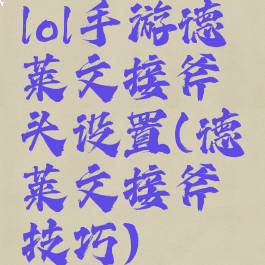 lol手游德
莱文接斧
头设置(德
莱文接斧
技巧)